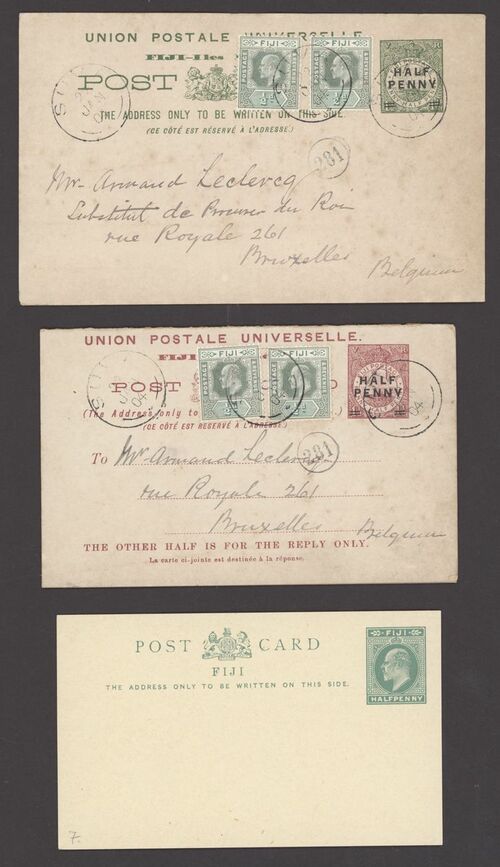 UNION POSTALE UNIVERSELLE
FIJI-Iles
POST
FIJI FIJI
POSTAGE
HALF
PENNY
SUVA
JAN
THE ADDRESS ONLY TO BE WRITTEN ON THIS SIDE.
(CE CÔTÉ EST RÉSERVÉ À L'ADRESSE.)
281
Mr Armand Leclercq
Substitut de Procureur du Roi
rue Royale 261
Bruxelles
Belgium
UNION POSTALE UNIVERSELLE.
FIJI
POST
FIJI FIJI
HALF
PENNY
04
(The Address only to
(CE CÔTÉ EST RÉSERVÉ À L'ADRESSE.)
281
To Mr Armand Leclercq
rue Royale 261
Bruxelles
Belgium
THE OTHER HALF IS FOR THE REPLY ONLY.
La carte ci-jointe est destinée à la réponse.
POST CARD
FIJI
THE ADDRESS ONLY TO BE WRITTEN ON THIS SIDE.
FIJI
HALFPENNY
7.